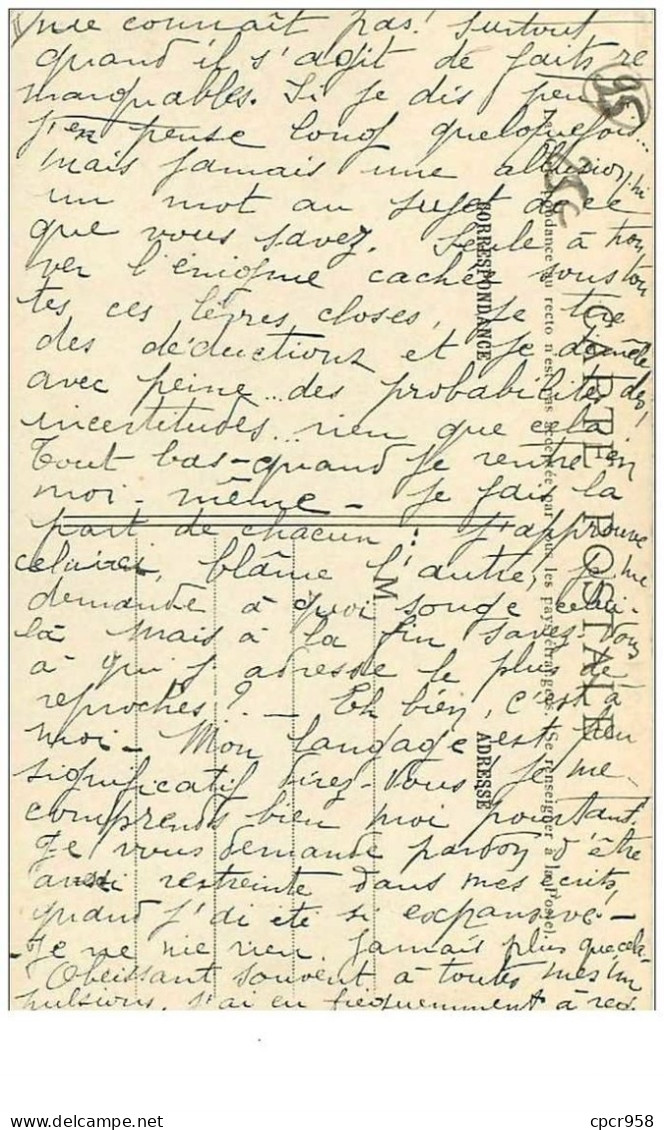 me connaît pas! Surtout
quand il s'agit de faits re
marquables. Si je dis peu
j'en pense long quelquefois...
mais jamais une allusion, ni
un mot au sujet de ce
que vous savez. Seule à trou
ver l'énigme cachée sous tou
tes ces lèvres closes, je tire
des déductions et je démêle
avec peine... des probabilités, des
incertitudes... rien que cela
Tout bas - quand je rentre en
moi-même - je fais la
part de chacun : J'approuve
celui-ci, blâme l'autre, je me
demande à quoi songe celui-
là mais à la fin savez-vous
à qui j'adresse le plus de
reproches? - Eh bien, c'est à
moi - Mon langage est peu
significatif direz-vous. Je me
comprends bien moi pourtant.
Je vous demande pardon d'être
aussi restreinte dans mes écrits,
quand j'ai été si expansive -
- Je ne nie rien. Jamais plus que cela -
Obéissant souvent à toutes mes im
pulsions, j'ai eu fréquemment à
95
CARTE POSTALE
La Correspondance au recto n'est pas acceptée par tous les pays étrangers. (Se renseigner à la Poste)
CORRESPONDANCE
ADRESSE
M
cpcr958